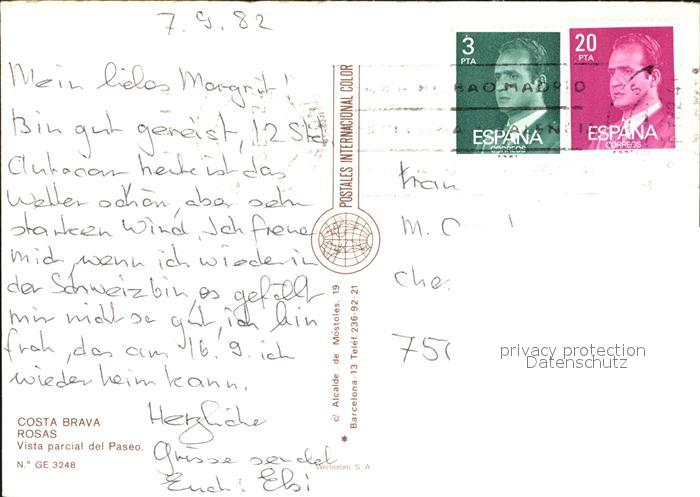 7.9.82
Mein liebes Margrit!
Bin gut gereist, 12 Std.
Autocar heute ist das
Wetter schön, aber sehr
starken Wind. Ich freue
mich, wenn ich wieder in
der Schweiz bin, es gefällt
mir nicht so gut, ich bin
froh, das am 16.9. ich
wieder heim kann.
Herzliche
Grüsse sendet
Euch: Elsi
COSTA BRAVA
ROSAS
Vista parcial del Paseo.
N.° GE 3248
POSTALES INTERNACIONAL COLOR
c/ Alcalde de Móstoles, 19
Barcelona-13 Teléf. 236-92-21
Werticrom, S. A
3
PTA
ESPAÑA
CORREOS
F.N.M.T.
20
PTA
ESPAÑA
CORREOS
F.N.M.T.
BAO MADRID
Frau
M. C
Che
750
privacy protection
Datenschutz